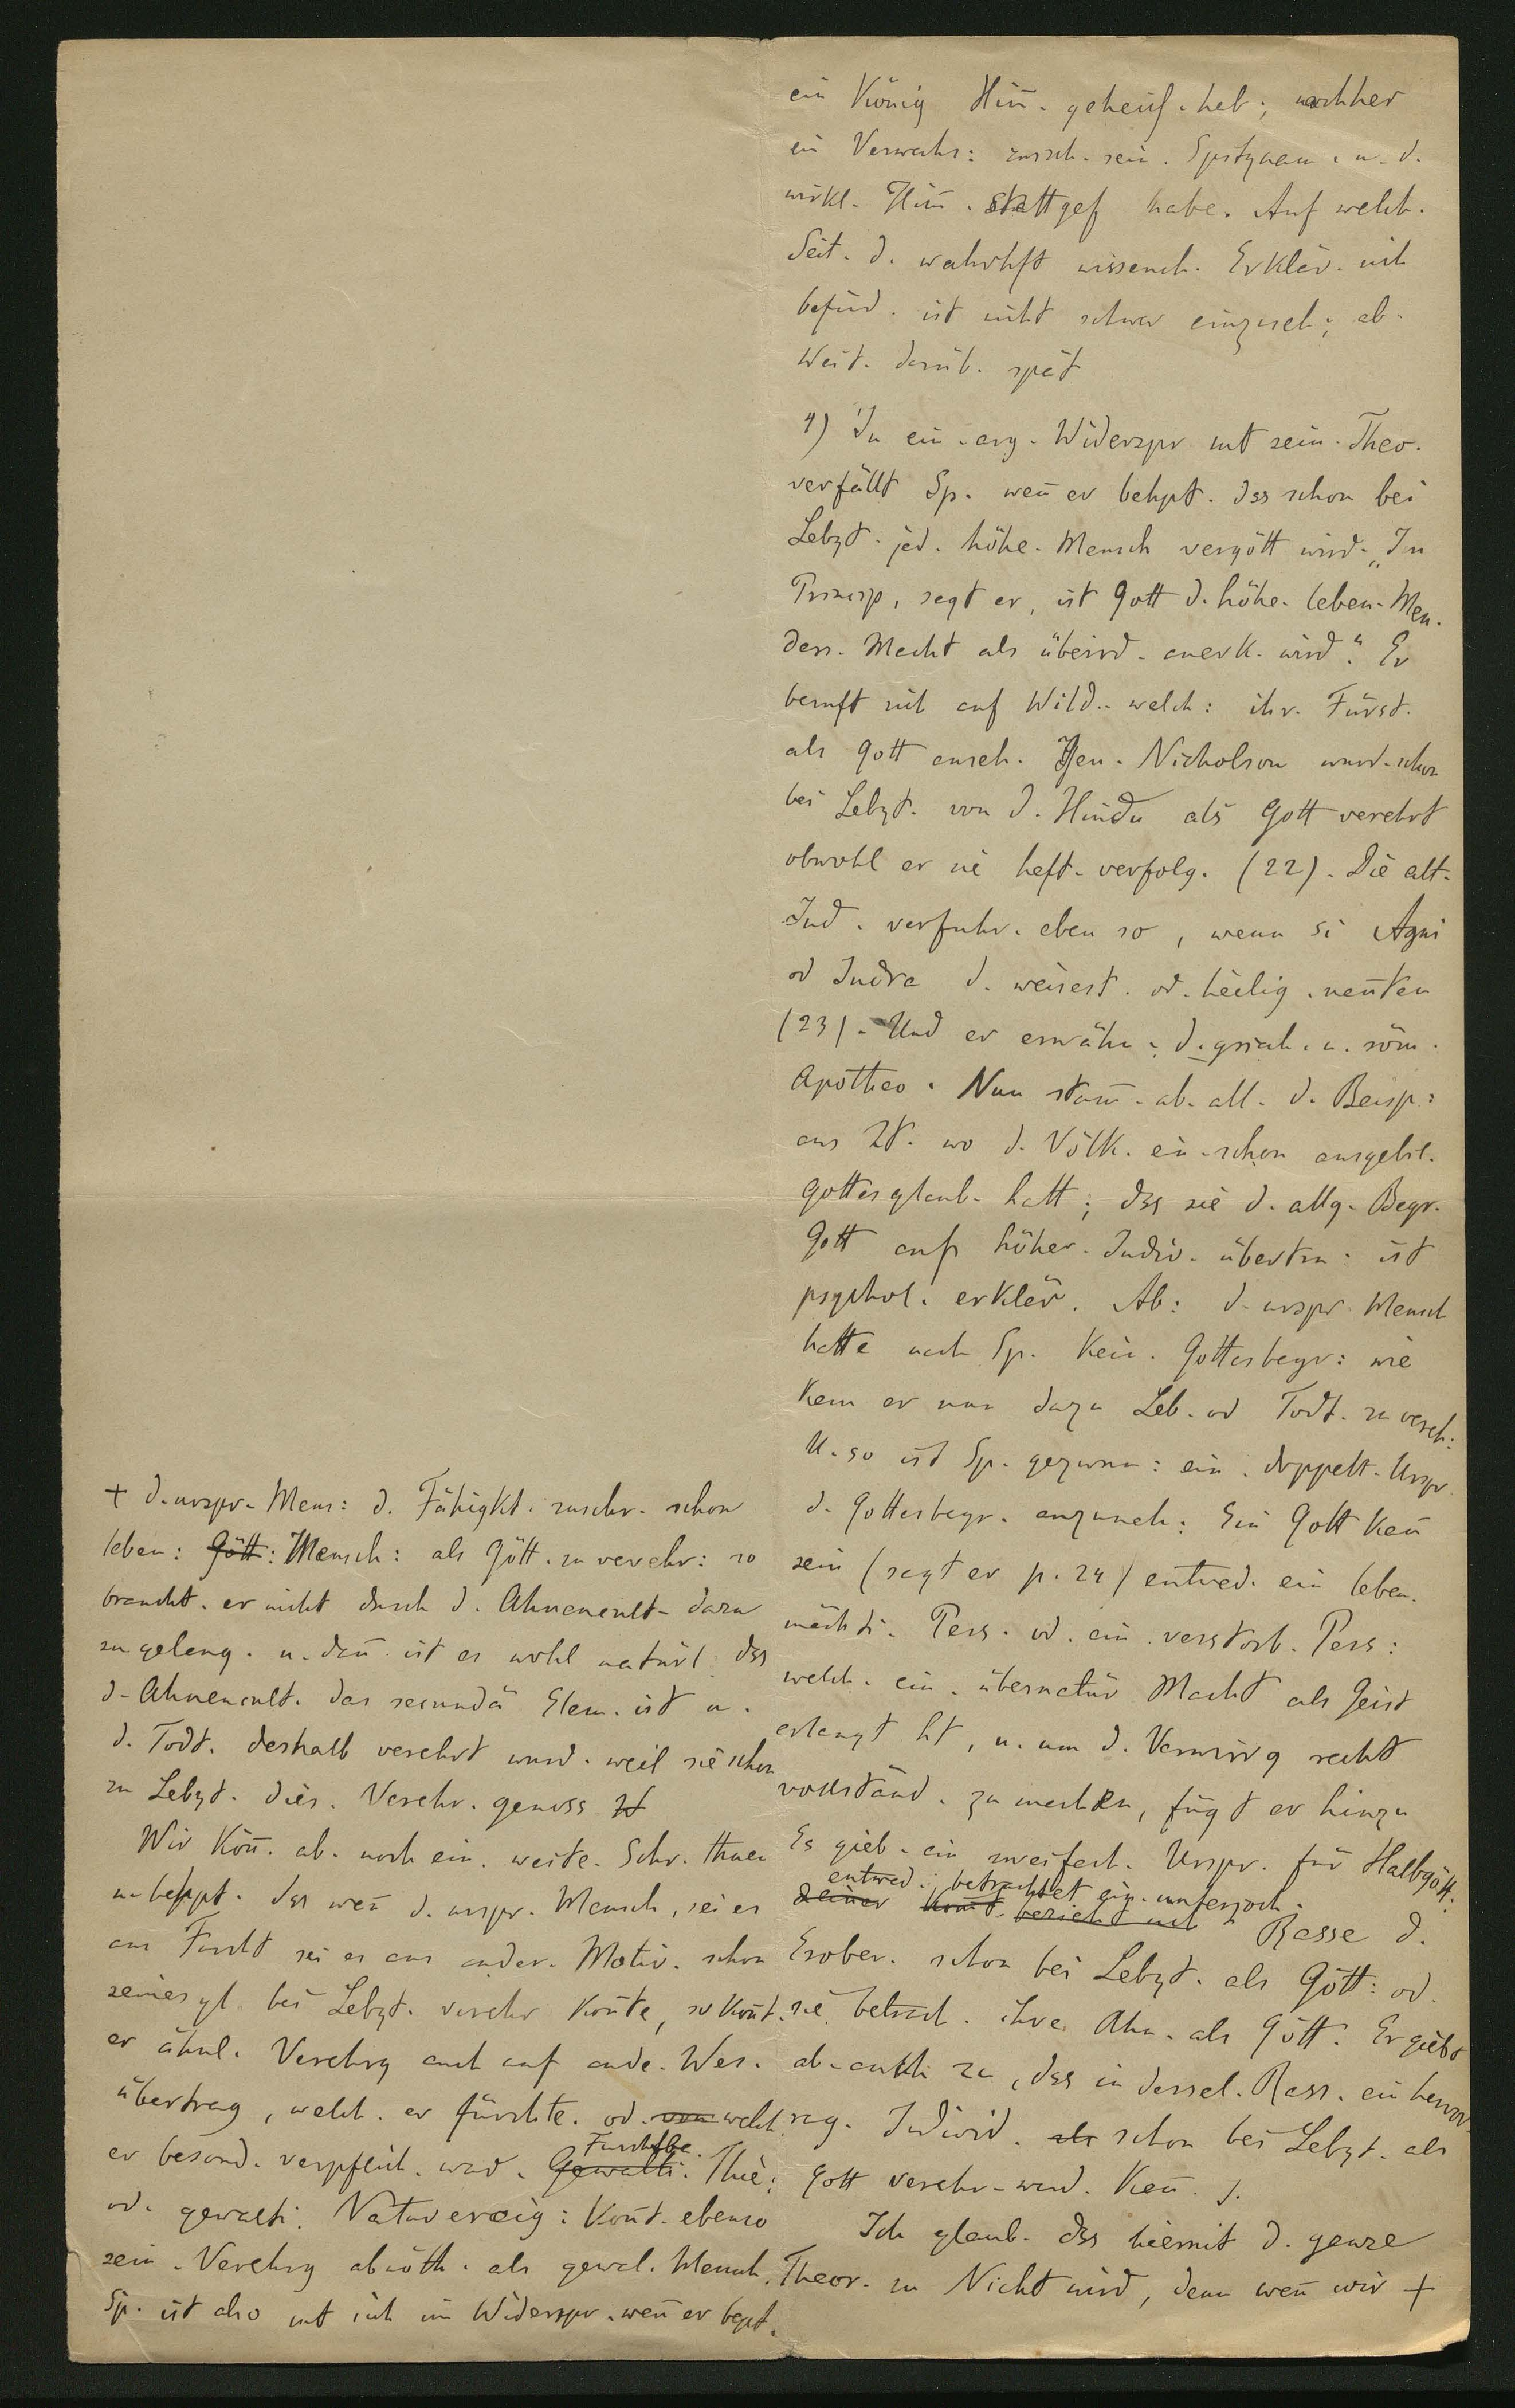 ein König Him̄. geheiss. hab.; nachher
ein Verwechs: zwisch. sein. Spitznam. u. d.
wirkl. Him̄. stattgef habe. Auf welch.
Seit. d. wahrhft wissensch. Erklär. sich
befind. ist nicht schwer einzuseh; ab.
Weit. darüb. spät
4) In ein. arg. Widerspr mt sein. Theo.
verfällt Sp. wen̄ er behpt. dss schon bei
Lebzt. jed. höhe. Mensch vergött wird. „In
Prinzip, sagt er, ist Gott d. höhe. leben. Men.
dess. Macht als überird. anerk. wird." Er
beruft sich auf Wild. welch: ihr. Fürst.
als Gott anseh. Gen. Nicholson wurd. schon
bei Lebzt. von d. Hindu als Gott verehrt
obwohl er sie heft. verfolg. (22). Die alt.
Ind. verfuhr. eben so, wenn si Agni
od Indra d. weisest. od. heilig. nen̄ten
(23). Und er erwähn. d. griech. u. röm.
Apotheo. Nun stam̄. ab. all. d. Beisp:
aus Zt. wo d. Völk. ein schon ausgebil.
Gottesglaub. hatt; dss sie d. allg. Begr.
Gott auf höher. Indiv. übertra: ist
psychol. erklär. Ab: d. urspr. Mensch
hatte nach Sp. kein. Gottesbegr: wie
kam er nun dazu Leb. od Todt. zu vereh:
U. so ist Sp. gezwun: ein. doppelt. Urspr.
d. Gottesbegr. anzuneh: Ein Gott kan̄
sein (sagt er p. 24) entwed. ein leben.
mächti. Pers. od. ein. verstorb. Pers:
welch. ein. übernatür Macht als Geist
erlangt ht, u. um d. Verwirrg recht
vollständ. zu machen, fügt er hinzu
Es gieb. ein zweifach. Urspr. für Halbgött.
entwed. betrachtet ein. unterjoch.
Rasse d.
Erober. schon bei Lebzt. als Gött: od.
sie betrach. ihre Ahn. als Gött. Er giebt
ab. auch zu, dss in dersel. Rass. ein hervor
rag. Individ. als schon bei Lebzt. als
Gott verehr. werd. kan̄.
Ich glaub. dss hiermit d. ganze
Theor. zu Nicht wird, denn wen̄ wir +
+ d. urspr. Mens: d. Fähigkt. zuschr. schon
leben: Gött: Mensch: als Gött. zu verehr: so
braucht. er nicht durch d. Ahnencult. dazu
zu gelang. u. dan̄ ist es wohl natürl. dss
d. Ahnencult. das secundä Elem. ist u.
d. Todt. deshalb verehrt wurd. weil sie schon
zu Lebzt. dies. Verehr. genoss ht
Wir kön̄. ab. noch ein. weite. Schr. thuen
u. behpt. dss wen̄ d. urspr. Mensch, sei es
aus Furcht sei es aus ander. Motiv. schon
seinesgl. bei Lebzt. verehr kon̄te, so kon̄t.
er ähnl. Verehrg auch auf ande. Wes.
übertrag, welch. er fürchte. od. von welch.
Furchtbe.
er besond. verpflich. war. Gewalti. Thie:
od. gewalti. Naturereig: kon̄t. ebenso
sein. Verehrg abnöth. als gewal. Mensch.
Sp. ist also mt sich im Widerspr. wen̄ er bept.